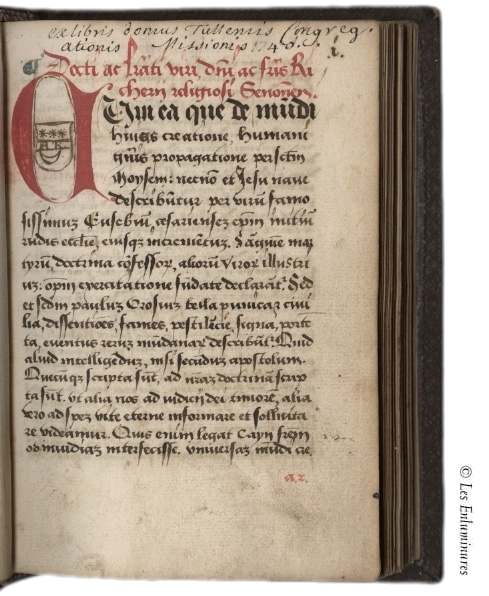 exlibris domus Tullensis Congreg
ationis Missionis 1740.
i.
Docti ac lrati viri dni ac fris Ri
cherii religiosi Senonen.
Qui ea que de mudi
huius creatione, humani
generis propagatione per sctm
Moysem: necno et Iesu naue
descributur per viru famo
sissimuz Eusebiu, cesariensez epm initiu
rudis ecclie, eiusqz incrementuz. Saguine mar
tyru, doctrina cofessor, alioru viror illustri
uz: opm exercitatione fudate declarat. Sed
et sedm paulus Orosius bella punica ciui
lia, dissentioes, fames, pestilecie, signa, porte
ta, euentus reruz mudanar describut. Quid
aliud intelligeduz, nisi secuduz apostolum.
Quecuqz scripta sut, ad nraz doctrina scrip
ta sut. vt alia nos ad iudicii dei timore, alia
vero ad spez vite eterne informare et sollicita
re videamur. Quis enim legat Cayn frem
ob inuidiaz interfecisse. vniuersaz mudi cre
a.z.
© Les Enluminures